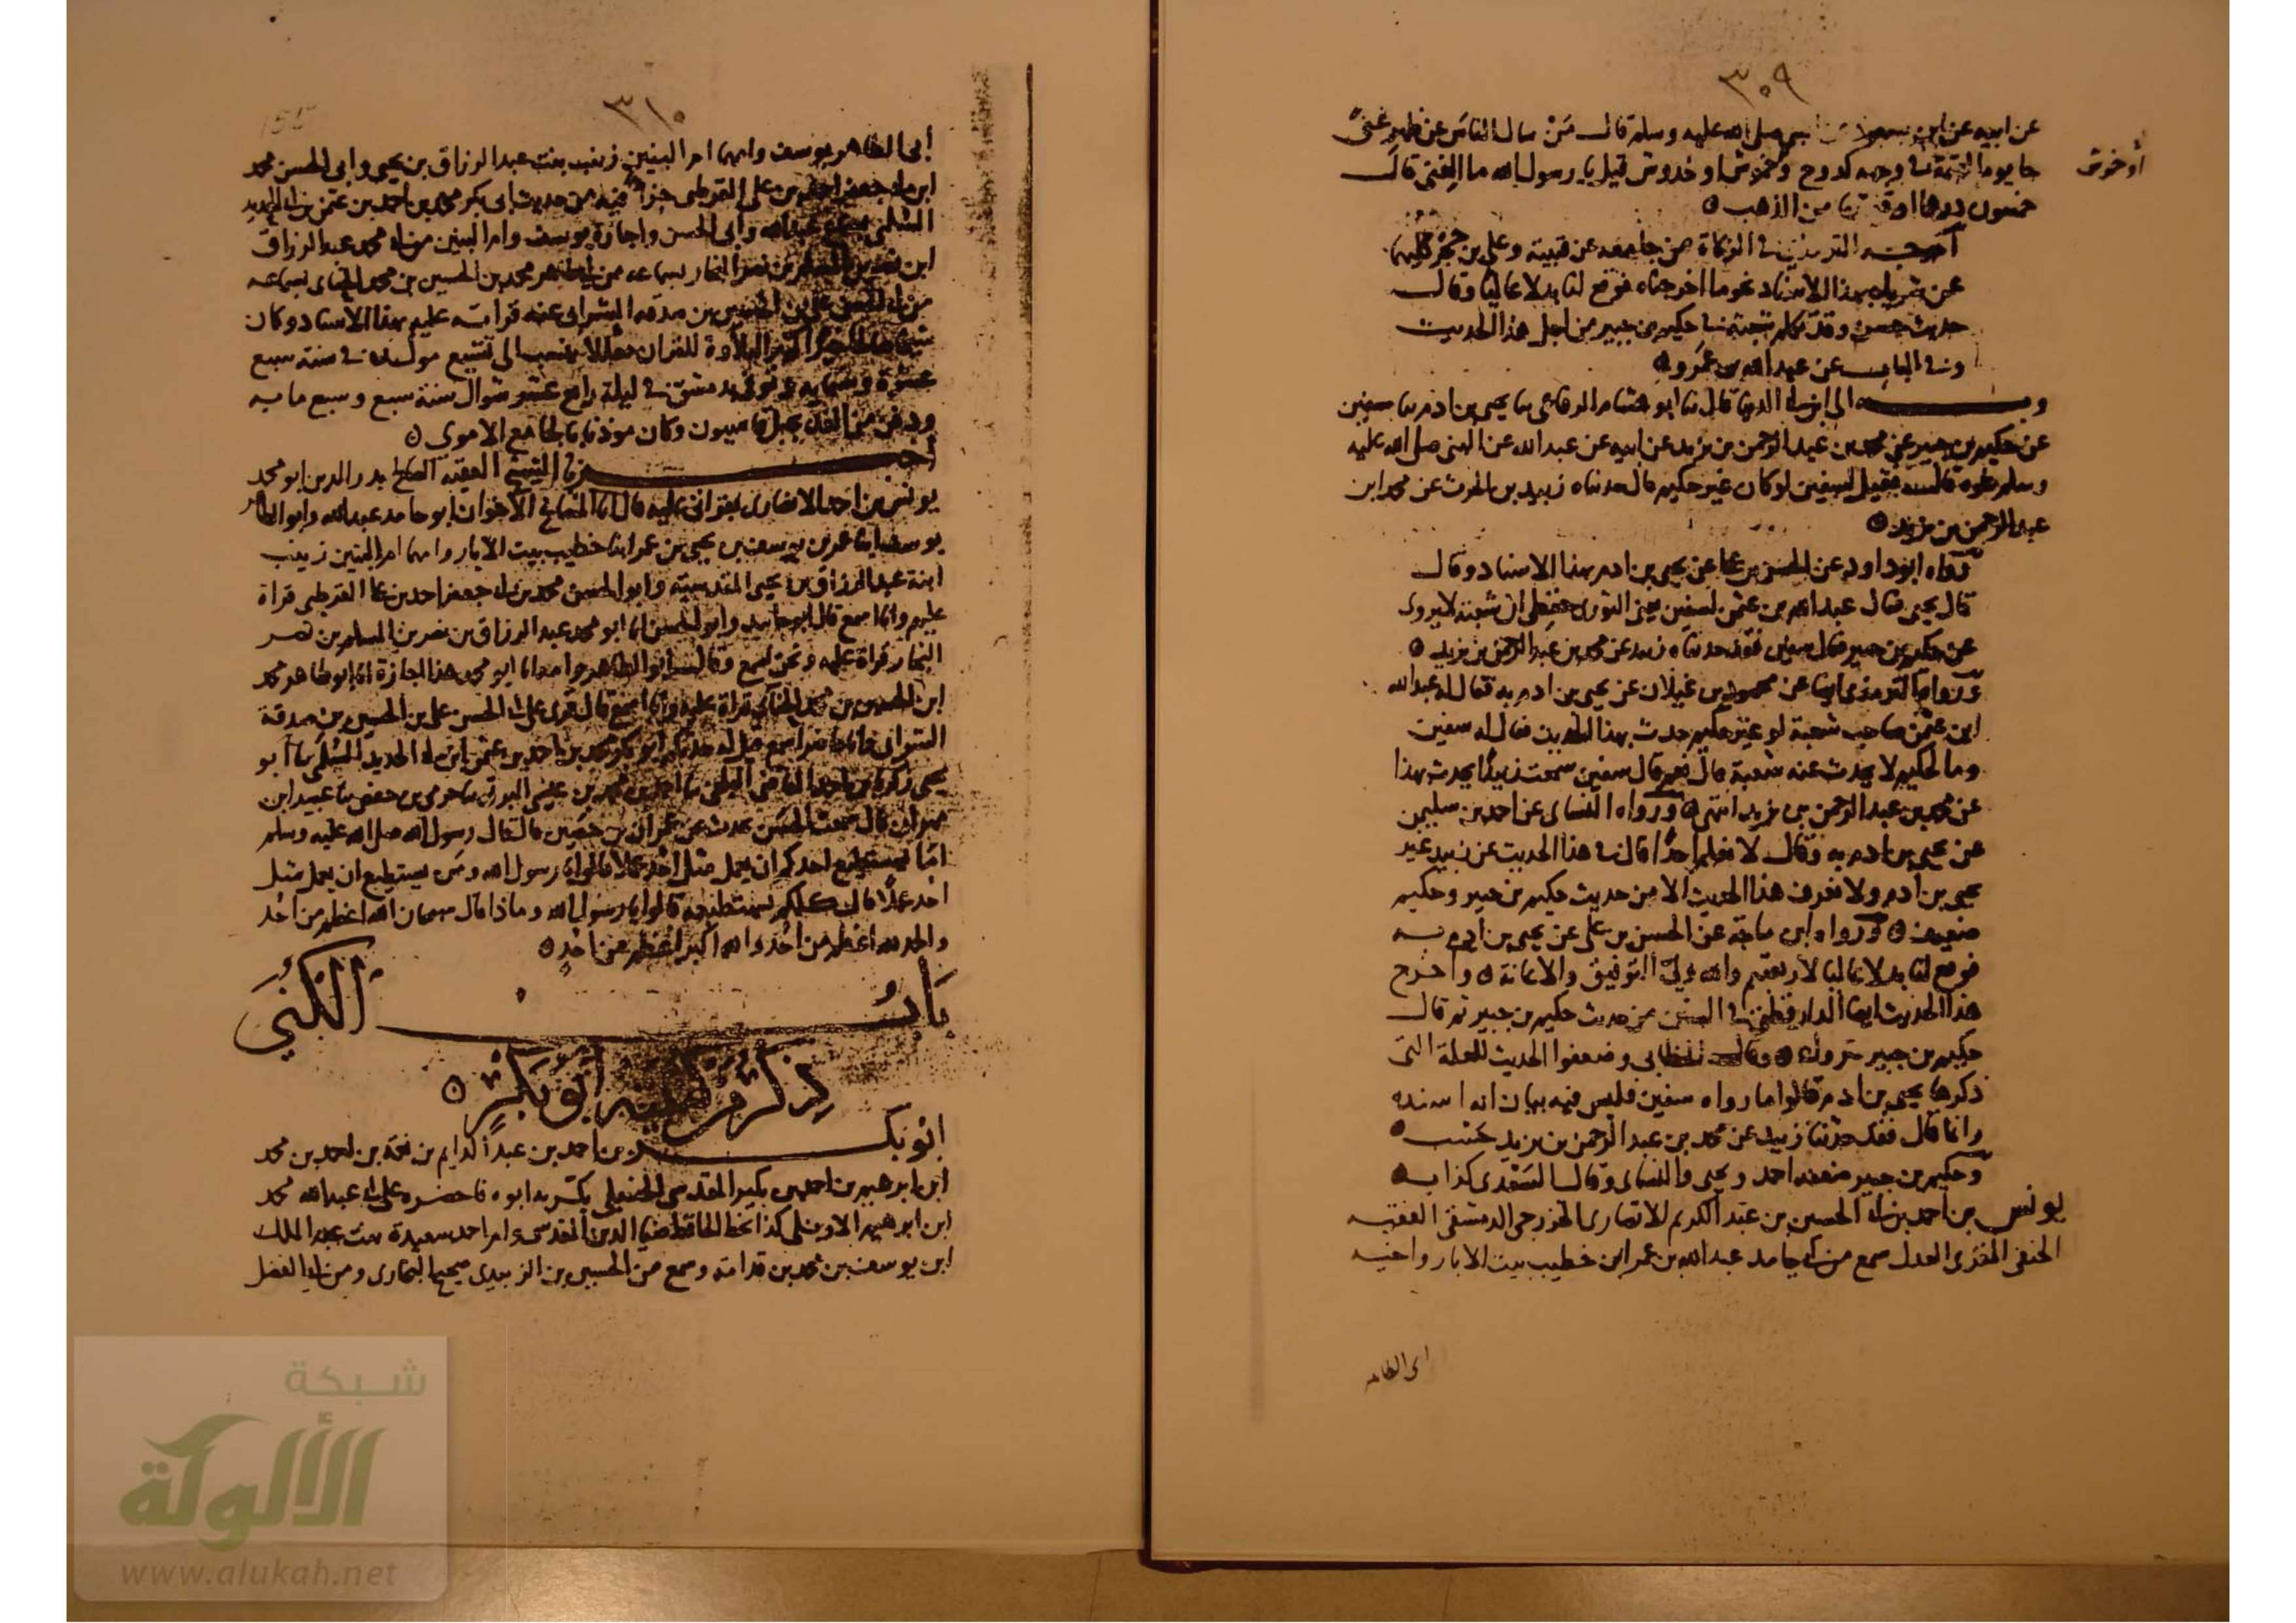 ٣٠٩
عن ابيه عن ابن مسعود عن النبي صلى الله عليه وسلم قال من سال الناس عن ظهر غنى
جا يوم القيمة في وجهه كدوح وخموش او خدوش قيل يا رسول الله ما الغنى قال
أو خوش
خمسون درهما او قيمتها من الذهب
اخرجه الترمذي في الزكاة من جامعه عن قتيبة وعلي بن حجر كليهما
عن شريك بهذا الاسناد نحو ما اخرجناه فوقع لنا بدلا عاليا وقال
حديث حسن وقد تكلم شعبة في حكيم بن جبير من اجل هذا الحديث
وفي الباب عن عبد الله بن عمرو
وبه الى ابن ابي الدنيا قال نا ابو هشام الرفاعي نا يحيى بن ادم نا سفين
عن حكيم بن جبير عن محمد بن عبد الرحمن بن يزيد عن ابيه عن عبد الله عن النبي صلى الله عليه
وسلم نحوه قال فقيل لسفين لو كان غير حكيم قال حدثناه زبيد بن الحرث عن محمد ابن
عبد الرحمن بن يزيد
رواه ابو داود عن الحسن بن علي عن يحيى بن ادم بهذا الاسناد وقال
قال يحيى فقال عبد الله بن عثمن لسفين يعني الثوري حفظي ان شعبة لا يروي
عن حكيم بن جبير فقال سفين فقد حدثناه زبيد عن محمد بن عبد الرحمن بن يزيد
ورواه الترمذي ايضا عن محمود بن غيلان عن يحيى بن ادم به فقال له عبد الله
ابن عثمن صاحب شعبة لو غير حكيم حدث بهذا الحديث فقال له سفين
وما لحكيم لا يحدث عنه شعبة قال نعم قال سفين سمعت زبيدا يحدث بهذا
عن محمد بن عبد الرحمن بن يزيد انتهى ورواه النساى عن احمد بن سليمن
عن يحيى بن ادم به وقال لا نعلم احدا قال في هذا الحديث عن زبيد غير
يحيى بن ادم ولا نعرف هذا الحديث الا من حديث حكيم بن جبير وحكيم
ضعيف ورواه ابن ماجة عن الحسن بن علي عن يحيى بن ادم به
فوقع لنا بدلا عاليا لاربعتهم والله ولي التوفيق والاعانة واخرج
هذا الحديث ايضا الدارقطني في السنن من حديث حكيم بن جبير ثم قال
حكيم بن جبير متروك وقال الخطابي وضعفوا الحديث للعلة التي
ذكرها يحيى بن ادم قالوا اما رواه سفين فليس فيه بيان انه اسنده
وانما قال فقد حدثنا زبيد عن محمد بن عبد الرحمن بن يزيد حسب
وحكيم بن جبير ضعفه احمد ويحيى والنساى وقال السعدي كذاب
يونس بن احمد بن ابي الحسين بن عبد الكريم الانصاري الخزرجي الدمشقي الفقيه
الحنفي المقري العدل سمع من ابي حامد عبد الله بن عمر ابن خطيب بيت الابار واخيه
ابي الطاهر
٣١٠
أبي الطاهر يوسف وامهما ام البنين زينب بنت عبد الرزاق بن يحيى وابي الحسن محمد
ابن ابي جعفر احمد بن علي القرطبي جزأ فيه من حديث ابي بكر محمد بن احمد بن عثمن بن ابي الحديد
السلمي بسماع عبد الله وابي الحسن واجازة يوسف وام البنين من ابي محمد عبد الرزاق
ابن نصر بن المسلم بن نصر النجار بسماعه من ابي طاهر محمد بن الحسين بن محمد الحنائي بسماعه
من ابي الحسن علي بن الحسين بن صدقه الشرابي عنه قراته عليه بهذا الاسناد وكان
شيخا صالحا خيرا كثير التلاوة للقران معدلا ينسب الى تشيع مولده في سنة سبع
عشرة وستمايه وتوفي بدمشق في ليلة رابع عشر شوال سنة سبع وسبع مايه
ودفن من الغد بجبل قاسيون وكان موذنا بالجامع الاموي
أخبرنا الشيخ الفقيه الصالح بدر الدين ابو محمد
يونس بن احمد الانصاري بقراتي عليه قال انا المشايخ الاخوان ابو حامد عبد الله وابو الطاهر
يوسف ابنا عمر بن يوسف بن يحيى بن عمر ابنا خطيب بيت الابار وامهما ام البنين زينب
ابنة عبد الرزاق بن يحيى المقدسية وابو الحسن محمد بن ابي جعفر احمد بن علي القرطبي قراة
عليهم وانا اسمع قال ابو حامد وابو الحسن انا ابو محمد عبد الرزاق بن نصر بن المسلم بن نصر
النجار قراة عليه ونحن نسمع وقال ابو الطاهر وامه انا ابو محمد هذا اجازة انا ابو طاهر محمد
ابن الحسين بن محمد الحنائي قراة عليه وانا اسمع قال قرى على ابي الحسن علي بن الحسين بن صدقة
الشرابي وانا حاضر اسمع قيل له حدثكم ابو بكر محمد بن احمد بن عثمن ابن ابي الحديد السلمي نا أبو
يحيى زكريا بن احمد القاضي البلخي نا احمد بن محمد بن عيسى البرتي نا حرمي بن حفص نا عبيد ابن
مهران قال سمعت الحسن يحدث عن عمران بن حصين قال قال رسول الله صلى الله عليه وسلم
اما يستطيع احدكم ان يعمل مثل احد عملا قالوا يا رسول الله ومن يستطيع ان يعمل مثل
احد عملا قال كلكم يستطيعه قالوا يا رسول الله وماذا قال سبحان الله اعظم من احد
والحمد لله اعظم من احد والله اكبر اعظم من احد
بَابُ الكُنَى
ذكر من كنيته ابو بكر
ابو بكر بن احمد بن عبد الدايم بن نعمة بن احمد بن محمد
ابن ابرهيم بن احمد بن بكير المقدسي الحنبلي بكّر به ابوه فاحضره على ابي عبد الله محمد
ابن ابرهيم الاربلي كذا بخط الحافظ ضيا الدين المقدسي وام احمد سعيدة بنت عبد الملك
ابن يوسف بن محمد بن قدامة وسمع من الحسين بن الزبيدي صحيح البخاري ومن ابي الفضل
شبكة
الألوكة
www.alukah.net